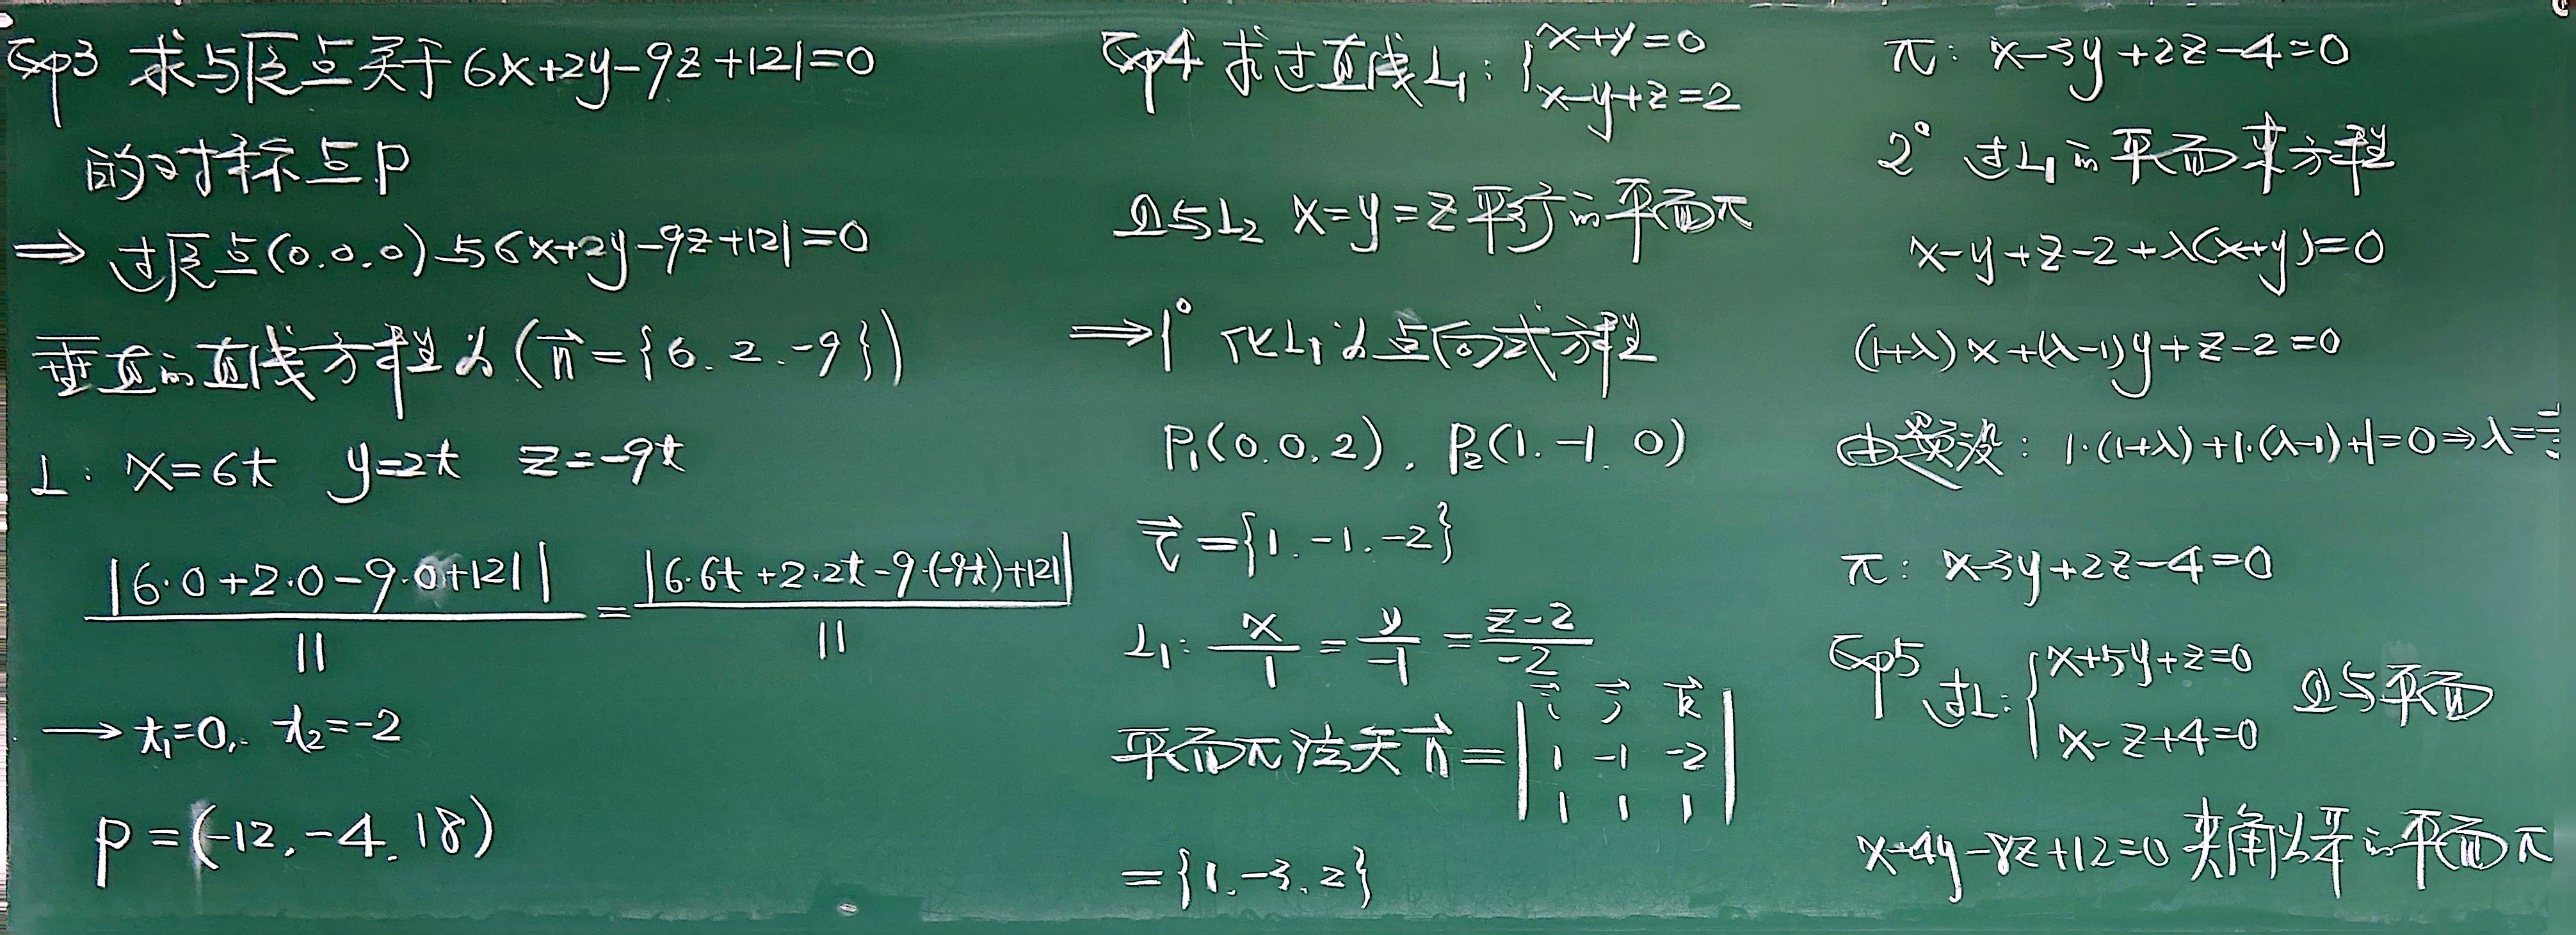 Exp3 求与原点关于6x+2y-9z+121=0
的对称点P
⇒ 过原点(0.0.0)与6x+2y-9z+121=0
垂直的直线方程为(n⃗={6.2.-9})
L: x=6t y=2t z=-9t
|6·0+2·0-9·0+121|/11 = |6·6t+2·2t-9·(-9t)+121|/11
→ t₁=0, t₂=-2
P=(-12.-4.18)
Exp4 求过直线L₁: {x+y=0
x-y+z=2
且与L₂ x=y=z平行的平面π
⇒1° 化L₁为点向式方程
P₁(0.0.2), P₂(1.-1.0)
τ⃗={1.-1.-2}
L₁: x/1 = y/-1 = z-2/-2
平面π法矢n⃗=|i⃗ j⃗ k⃗
1 -1 -2
1 1 1|
={1.-3.2}
π: x-3y+2z-4=0
2° 过L₁的平面束方程
x-y+z-2+λ(x+y)=0
(1+λ)x+(λ-1)y+z-2=0
由题设: 1·(1+λ)+1·(λ-1)+1=0⇒λ=
π: x-3y+2z-4=0
Exp5 过L: {x+5y+z=0
x-z+4=0 且与平面
x-4y-8z+12=0 夹角为π/4的平面π